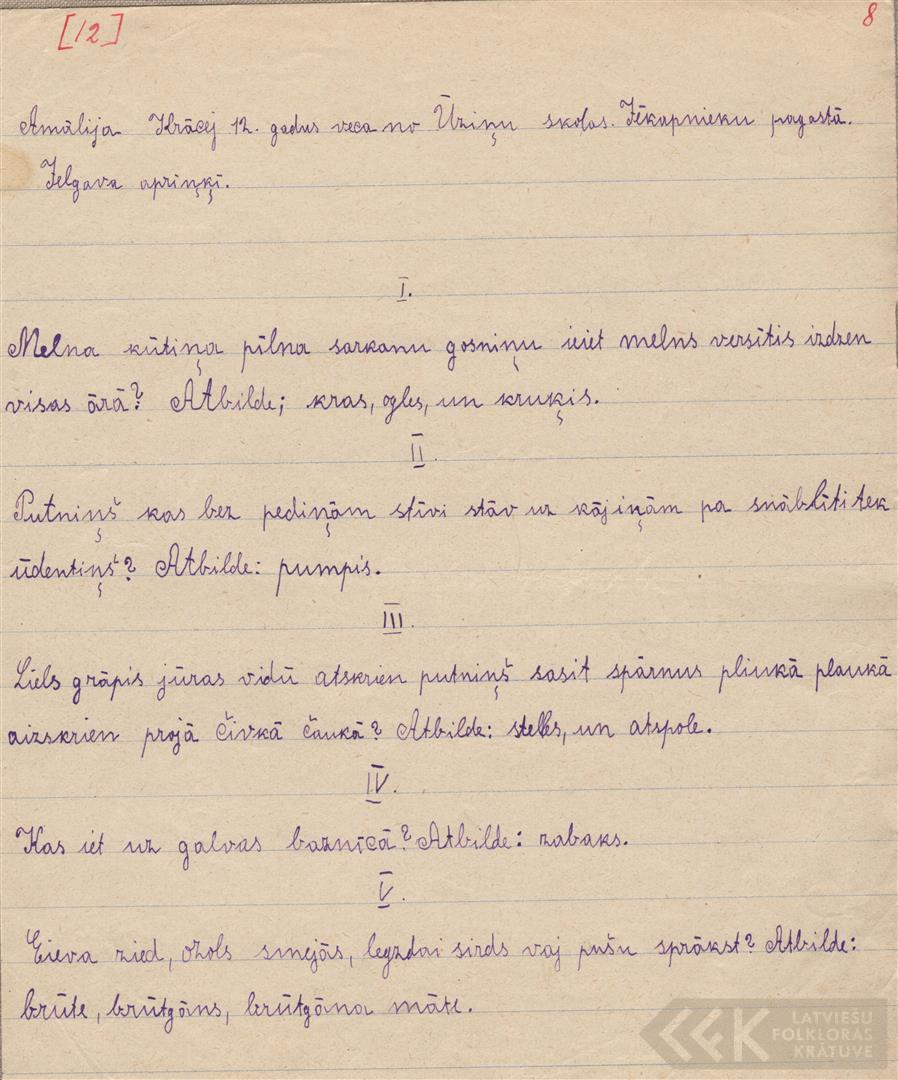 [12]
8
Amālija Krācej 12. gadus veca no Ūziņu skolas. Jēkapnieku pagastā.
Jelgava apriņķī.
I.
Melna kūtiņa pilna sarkanu gosniņu ieiet melns versītis izdzen
visas ārā? Atbilde; kras, ogles, un kruķis.
II.
Putniņš kas bez pediņām stīvi stāv uz kājiņām pa snāblīti tek
ūdentiņš? Atbilde: pumpis.
III.
Liels grāpis jūras vidū atskrien putniņš sasit spārnus pliukā plaukā
aizskrien projā čivkā čaukā? Atbilde: stelles, un atspole.
IV.
Kas iet uz galvas baznīcā? Atbilde: zabaks.
V.
Eieva zied, ozols smejās, legzdai sirds vaj pušu sprākst? Atbilde:
brūte, brūtgāns, brūtgāna māte.
LATVIEŠU
FOLKLORAS
KRĀTUVE